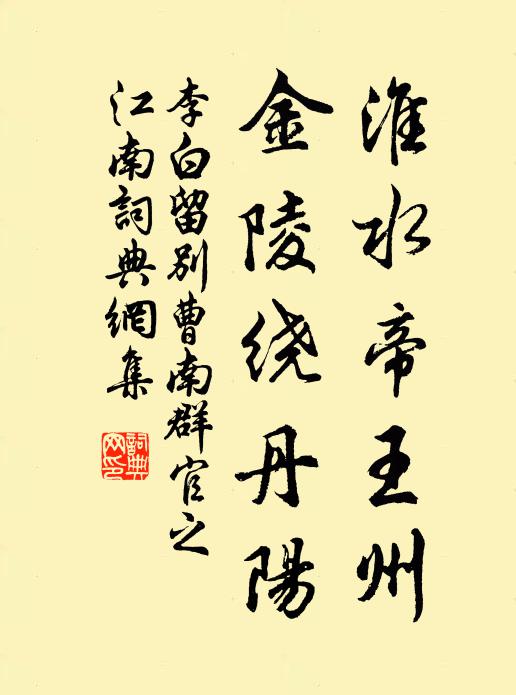 淮水帝王州
金陵绕丹陽
李白留別曹南群官之
江南詞典網集
詞典
网印